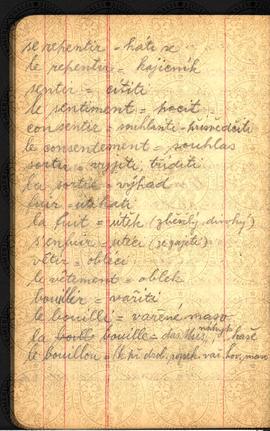 se repentir = káti se
le repentir = kajícník
sentir = cítiti
le sentiment = pocit
consentir = souhlasiti =
le consentement = souhlas
sortir = vyjíti, tříditi
la sortie = východ
fuir = utíkati
la fuit = útěk (zběsilý, divoký)
s'enfuir = utéci
vêtir = obléci
le vêtement = oblek
bouillir = vařiti
le bouilli = vařené maso
la bouille = das Mus, kaše
le bouillon =